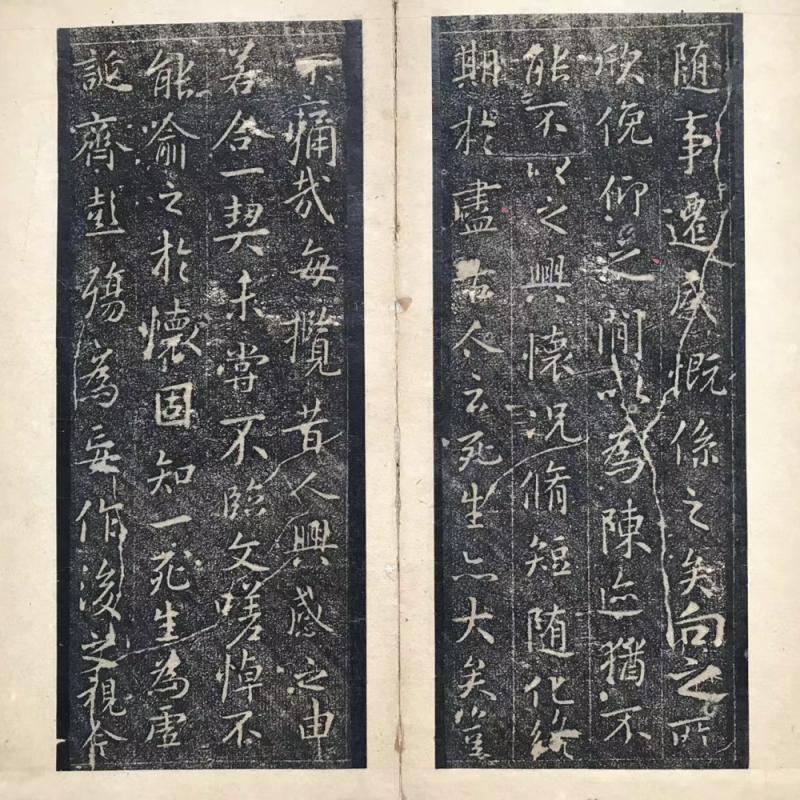 随事遷感慨係之矣向之所
欣俛仰之間以為陳迹猶不
能不以之興懷況脩短随化終
期於盡古人云死生亦大矣豈
不痛哉每攬昔人興感之由
若合一契未嘗不臨文嗟悼不
能喻之於懷固知一死生為虛
誕齊彭殤為妄作後之視今